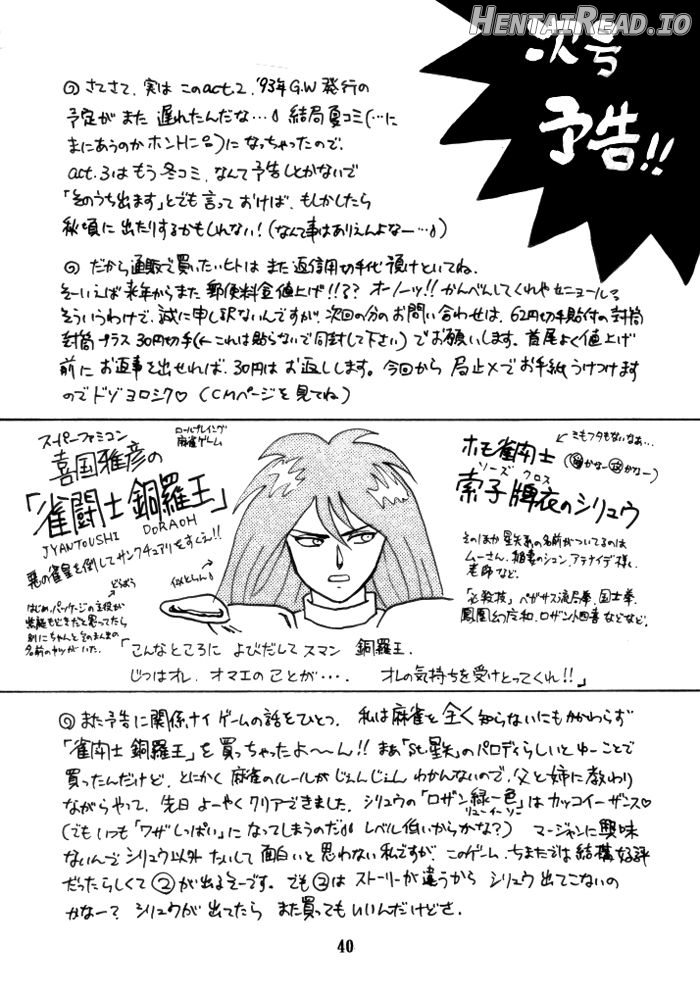 HENTAIREAD.IO
次号
予告!!
◎ さてさて、実は このact.2、'93年G.W発行の
予定が また 遅れたんだな…♪ 結局夏コミ(…に
まにあうのか ホントに)に なっちゃったので、
act.3はもう冬コミ、なんて予告しとかないで
「そのうち出ます」とでも言って おけば、もしかしたら
秋頃に 出たりするかもしれない!(なんて事はありえんよなー…♪)
◎ だから通販で買いたいヒトは また返信用切手代 預けといてね。
そーいえば 来年からまた 郵便料金値上げ!!?? オーノーッ!! かんべんしてくれや セニョール
そういうわけで、誠に申し訳ないんですが、次回の分のお問い合わせは、62円切手貼付の封筒
封筒プラス 30円切手(←これは貼らないで同封して下さい)でお願いします。首尾よく値上げ
前に お返事を出せれば、30円は お返しします。今回から 局止メでお手紙うけつけます
のでドゾヨロシク♡(CMページを見てね)
スーパーファミコン
ロールプレイング
麻雀ゲーム
喜国雅彦の
「雀闘士 銅羅王」
JYANTOUSHI DORAOH
悪の雀皇を倒してサンクチュアリをすくえ!!
どらおう
はじめ、パッケージの主役が
紫龍もどきだと思ってたら
別にちゃんとそのまんまの
名前のヤツがいた。
似とらん♪
←ミもフタもないなぁ…
ホモ雀闘士
ソーズ クロス
索子牌衣のシリュウ
そのほか 星矢系の名前がついてるのは
ムーさん、稲妻のシュン、アテナイデ様、
老師など。
「必殺技」 ペガサス流局拳、国士拳、
鳳凰幻反和、ロザン小四喜などなど。
「こんなところに よびだして スマン 銅羅王、
じつはオレ、オマエのことが…、 オレの気持ちを受けとってくれ!!」
◎ また予告に関係ナイ ゲームの話をひとつ、私は麻雀を全く知らないにもかかわらず
「雀闘士 銅羅王」を買っちゃったよ〜ん!! まあ「St.星矢」のパロディらしいとゆーことで
買ったんだけど、とにかく 麻雀のルールが じぇんじぇん わかんないので、父と姉に教わり
ながらやって、先日 よーやくクリアできました。シリュウの「ロザン緑一色」はカッコイーザンス♡
リューイーソー
(でもいつも「ワザしっぱい」になってしまうのだ♪♪ レベル低いからかな?) マージャンに興味
ないんで シリュウ以外 たいして 面白いと思わない私ですが、このゲーム、ちまたでは結構好評
だったらしくて②が出るそーです。でも②は ストーリーが違うから シリュウ出てこないの
かなー? シリュウが出てたら また買っても いいんだけどさ。
40